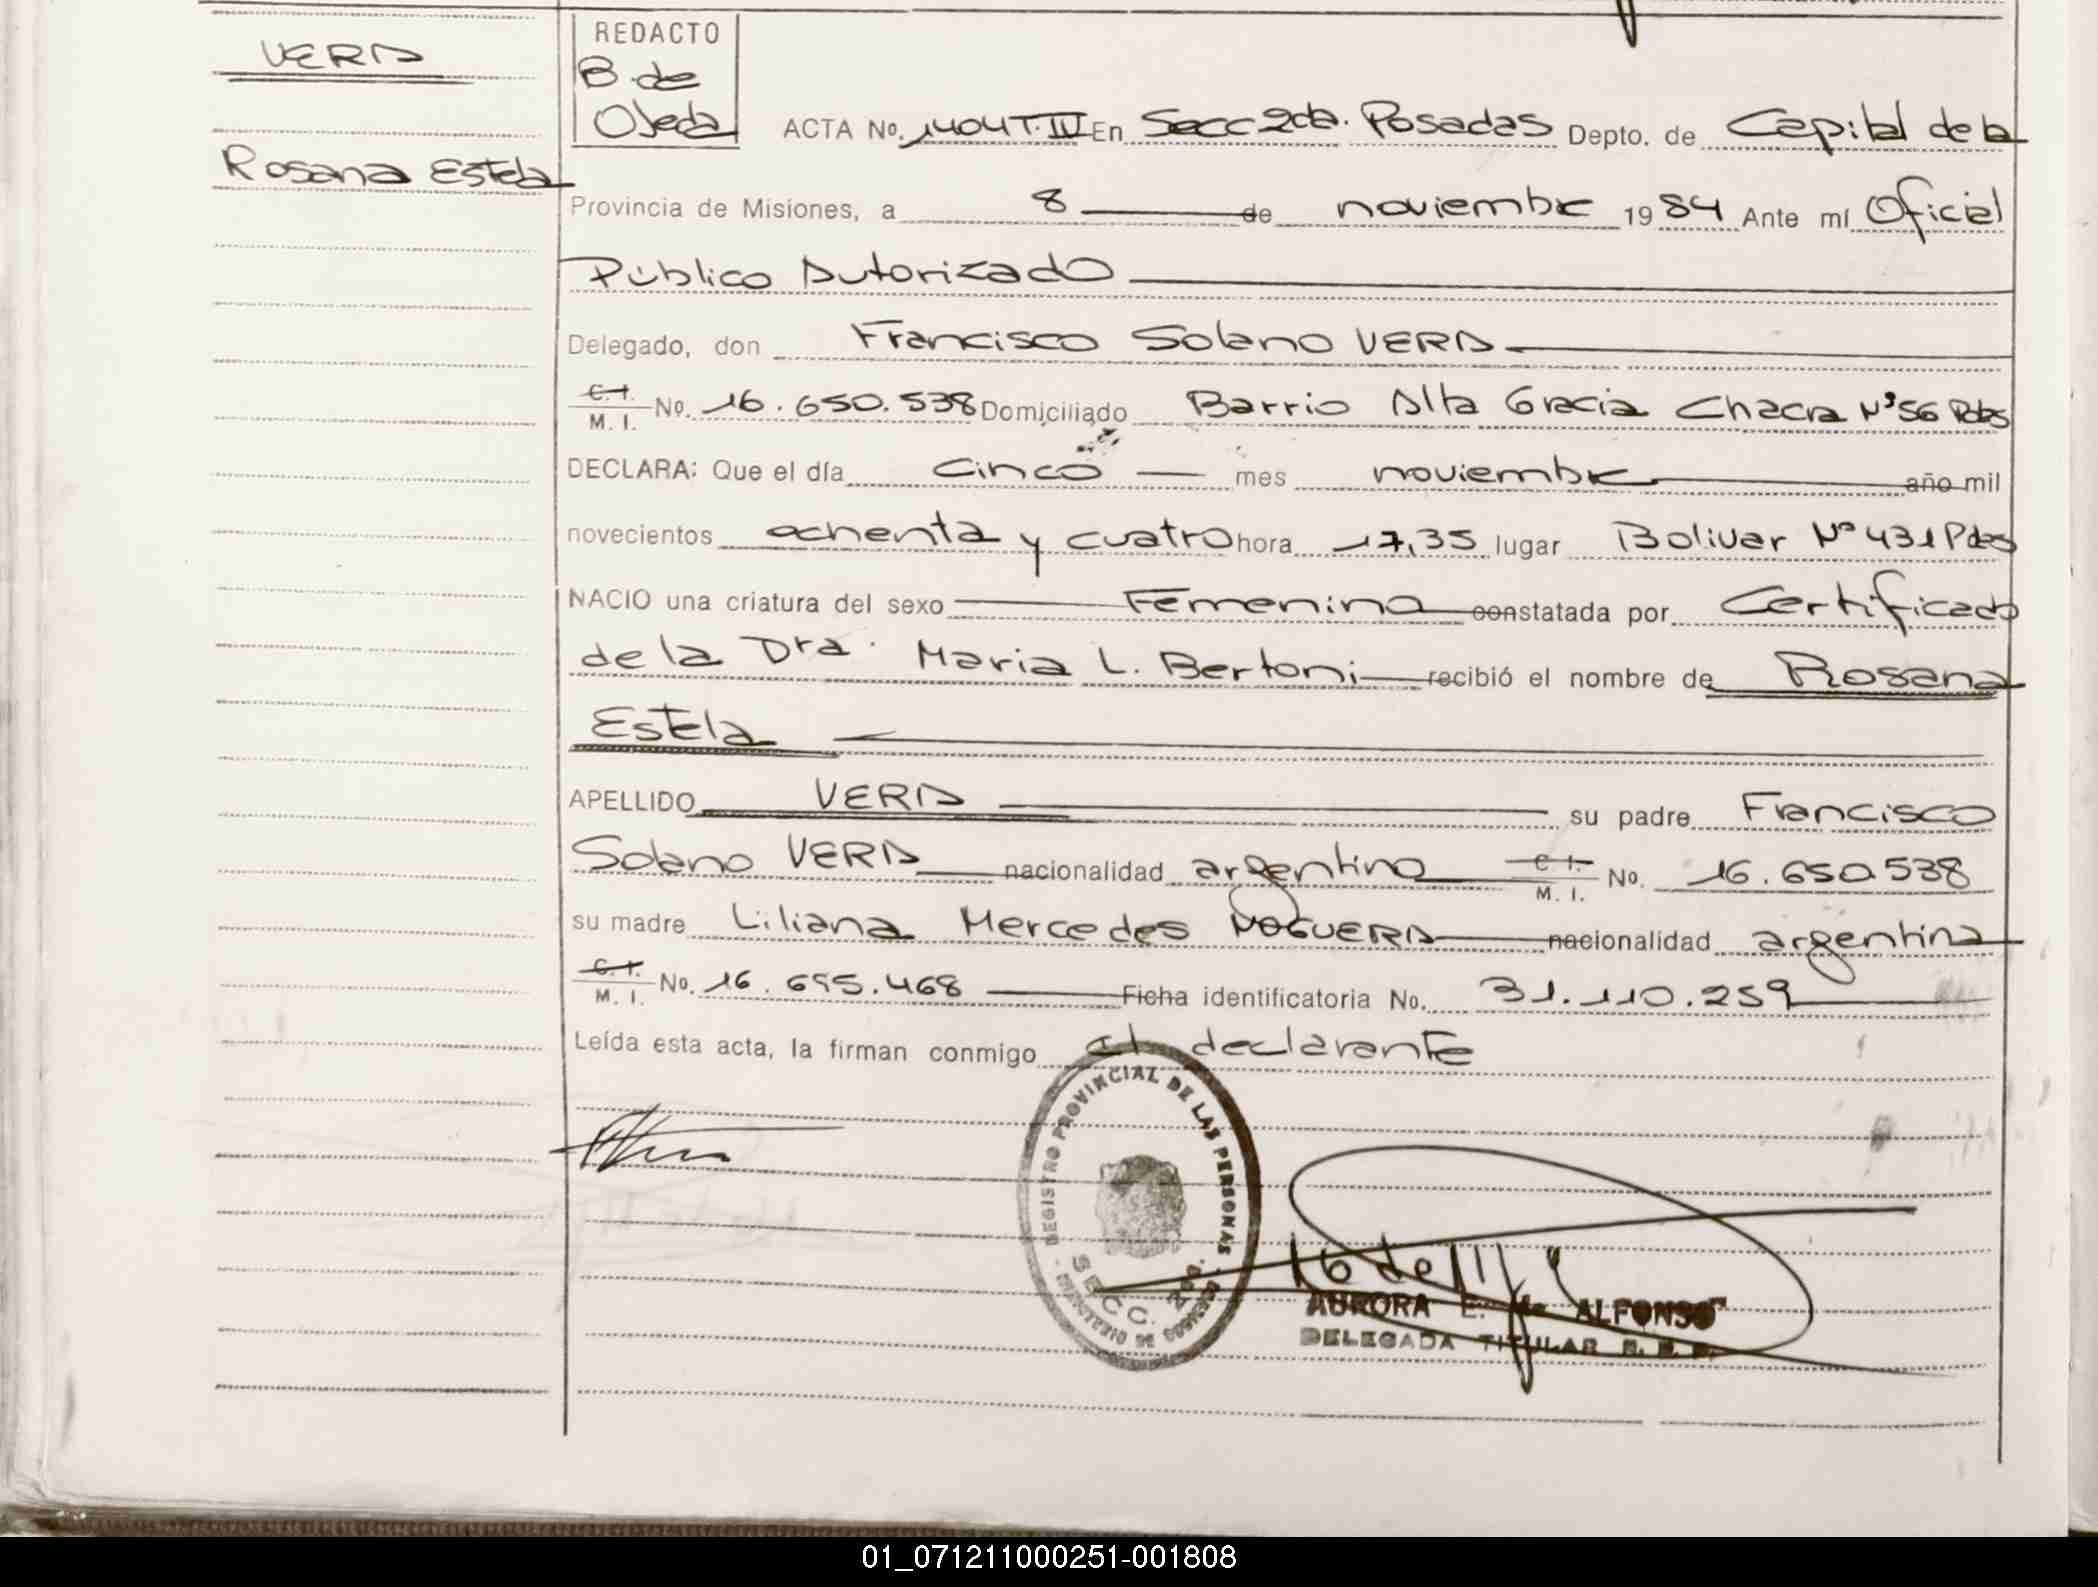 VERA
Rosana Estela
REDACTO
B. de
Ojeda
ACTA No. 1404 T. IV En Secc 2da. Posadas Depto. de Capital de la
Provincia de Misiones, a 8 de noviembre 1984 Ante mí Oficial
Público Autorizado
Delegado, don Francisco Solano VERA
C. I.
M. I. No. 16.650.538 Domiciliado Barrio Alta Gracia Chacra Nº 56 Pdas
DECLARA: Que el día cinco mes noviembre año mil
novecientos ochenta y cuatro hora 17,35 lugar Bolivar Nº 431 Pdas
NACIO una criatura del sexo Femenino constatada por Certificado
de la Dra. Maria L. Bertoni recibió el nombre de Rosana
Estela
APELLIDO VERA su padre Francisco
Solano VERA nacionalidad argentino C. I. M. I. No. 16.650.538
su madre Liliana Mercedes NOGUERA nacionalidad argentina
C. I.
M. I. No. 16.695.468 Ficha identificatoria No. 31.110.259
Leída esta acta, la firman conmigo el declarante
REGISTRO PROVINCIAL DE LAS PERSONAS
SECC.
AURORA E. de ALFONSO
DELEGADA TITULAR
01_071211000251-001808